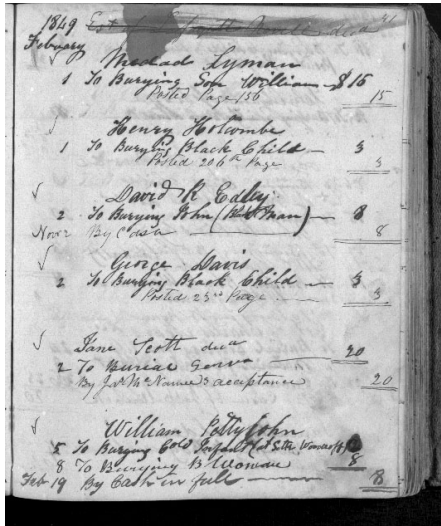 1849
41
February
Medad Lyman
1 To Burying Son William — $15
Posted Page 156
15
Henry Holcombe
1 To Burying Black Child — 3
Posted 206th Page
3
David R Edley
2 To Burying John — 8
Nov 2 By Cash 8
George Davis
2 To Burying Black Child — 3
Posted 23rd Page
3
Jane Scott decd
2 To Burial — 20
By J & McNamee's acceptance 20
William Pettyjohn
5 To Burying Cold Infant
8 To Burying B Woman 8
Feb 19 By Cash in full — 8